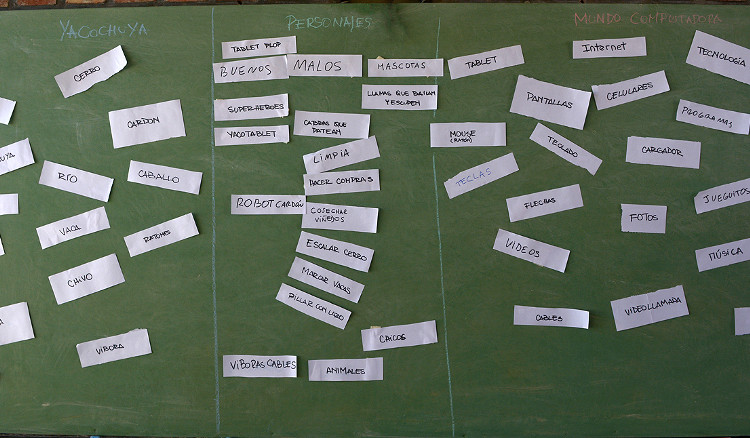 YACOCHUYA
CERRO
CARDON
RIO
CABALLO
VACA
RATONES
CHIVO
VIBORA
PERSONAJES
TABLET PLOP
BUENOS
MALOS
MASCOTAS
LLAMAS QUE BAILAN
Y ESCUPEN
SUPERHEROES
YACOTABLET
CABRAS QUE
PATEAN
LIMPIA
HACER COMPRAS
ROBOT CARDÓN
COSECHAR
VIÑEDOS
ESCALAR CERRO
MARCAR VACAS
PILLAR CON LIZO
CHICOS
VIBORAS CABLES
ANIMALES
MUNDO COMPUTADORA
TABLET
Internet
TECNOLOGÍA
PANTALLAS
CELULARES
PROGRAMAS
MOUSE
(RATON)
TECLADO
CARGADOR
TECLAS
FLECHAS
FOTOS
JUEGUITOS
VIDEOS
MÚSICA
CABLES
VIDEOLLAMADA